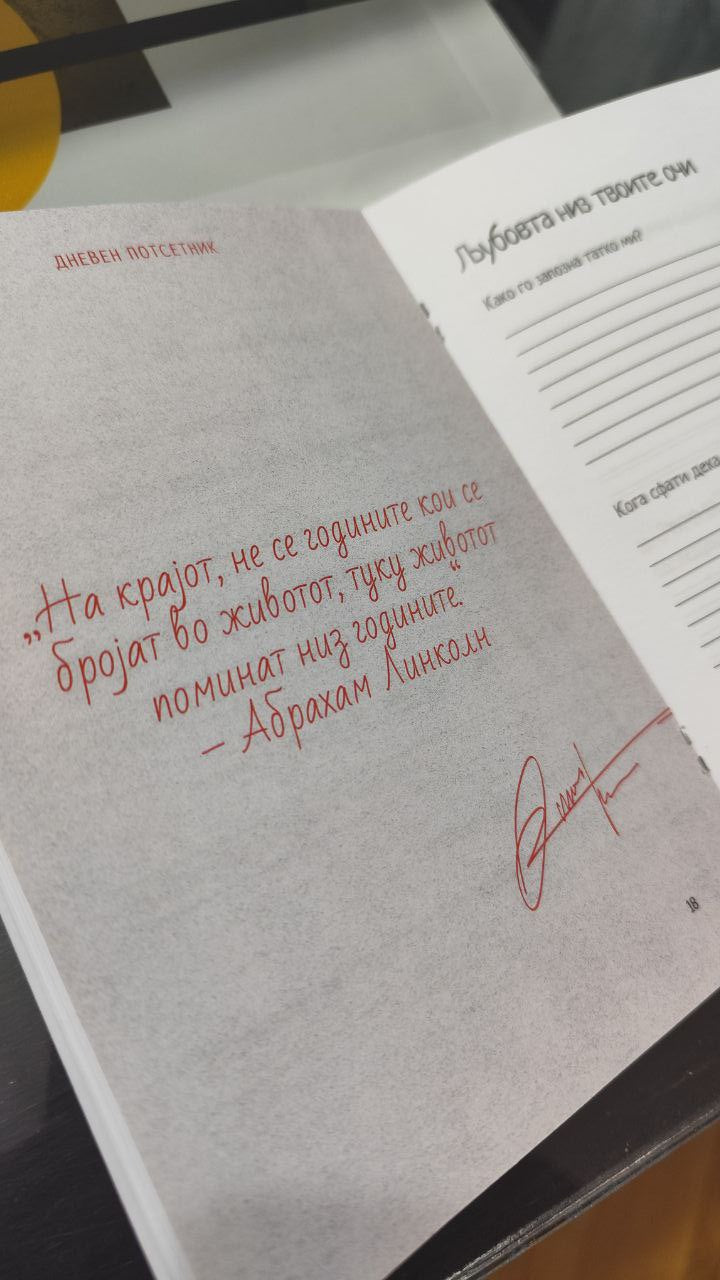 ДНЕВЕН ПОТСЕТНИК
„На крајот, не се годините кои се
бројат во животот, туку животот
поминат низ годините.“
– Абрахам Линколн
18
Љубовта низ твоите очи
Како го запозна татко ми?
Кога сфати дека